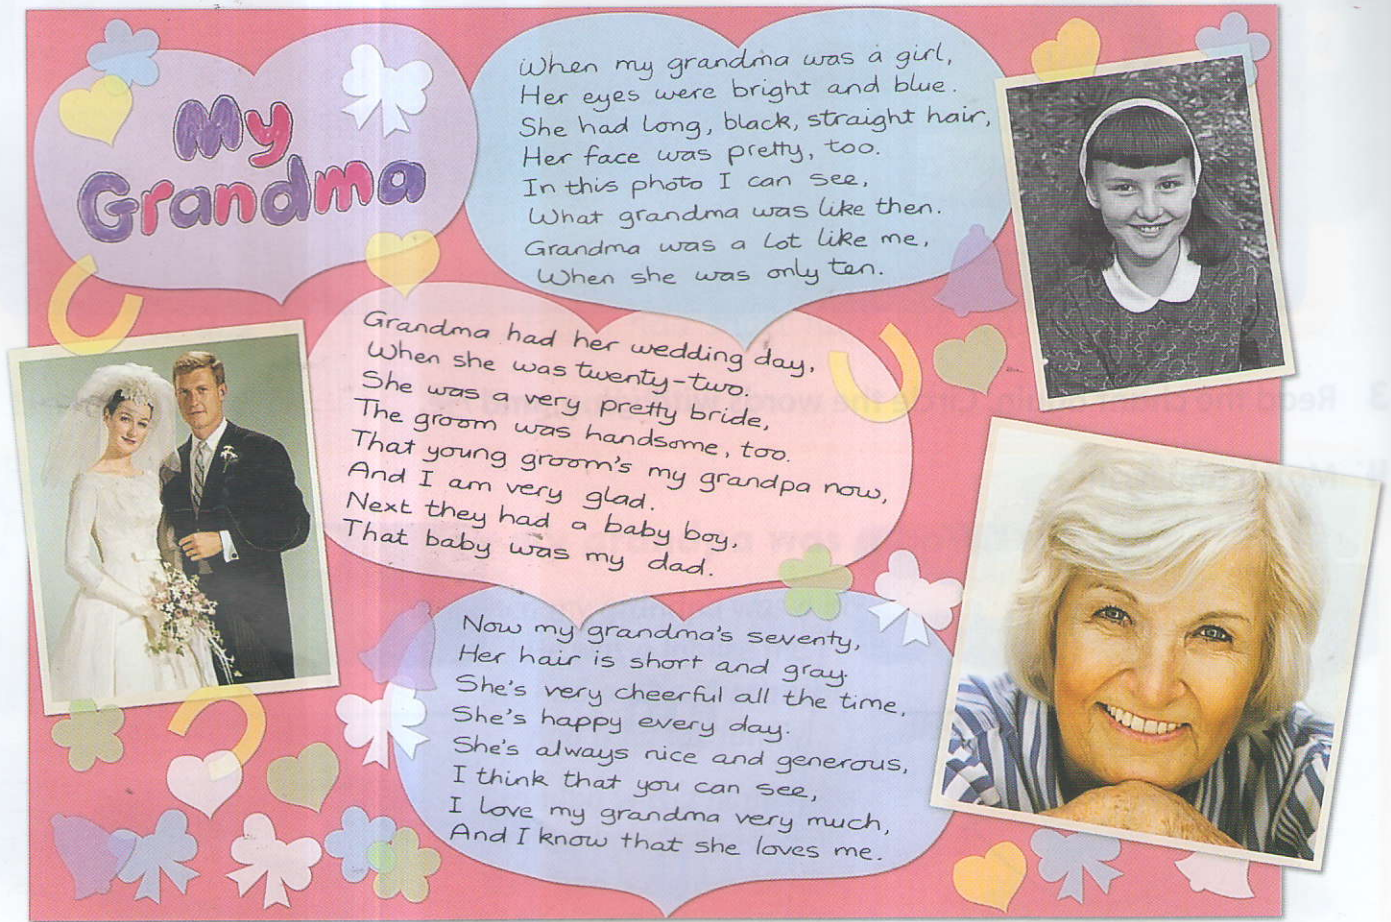 My
Grandma
When my grandma was a girl,
Her eyes were bright and blue.
She had long, black, straight hair,
Her face was pretty, too.
In this photo I can see,
What grandma was like then.
Grandma was a lot like me,
When she was only ten.
Grandma had her wedding day,
When she was twenty-two,
She was a very pretty bride,
The groom was handsome, too.
That young groom's my grandpa now,
And I am very glad.
Next they had a baby boy,
That baby was my dad.
Now my grandma's seventy,
Her hair is short and gray.
She's very cheerful all the time,
She's happy every day.
She's always nice and generous,
I think that you can see,
I love my grandma very much,
And I know that she loves me.